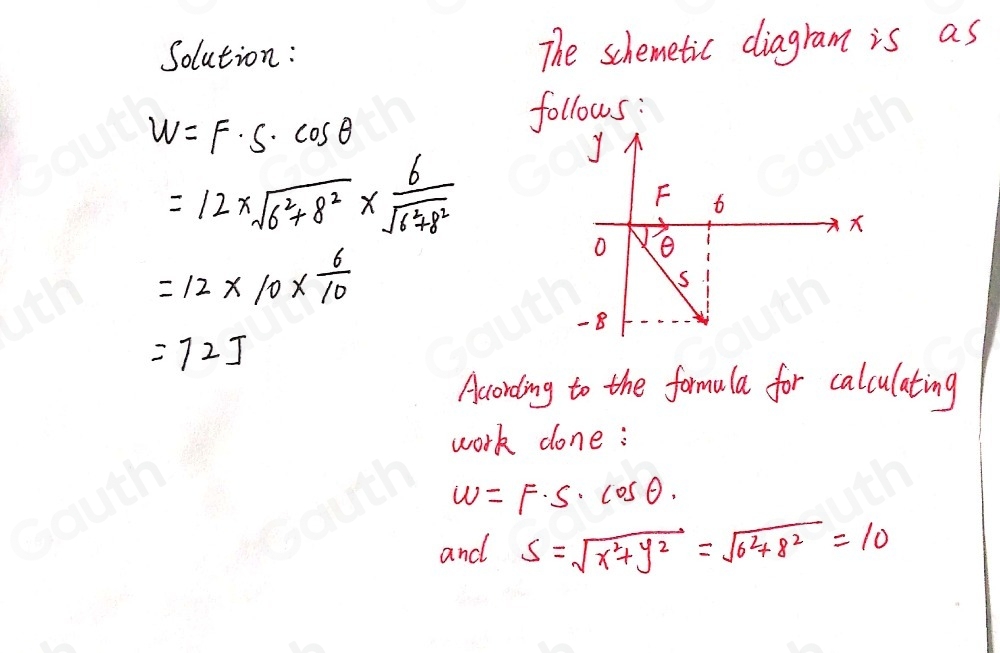 Solution:
W = F · S · cos θ
= 12 × √(6²+8²) × 6/√(6²+8²)
= 12 × 10 × 6/10
= 72 J
The schemetic diagram is as
follows:
y
F
6
x
0
θ
S
-8
According to the formula for calculating
work done:
W = F · S · cos θ.
and S = √(x²+y²) = √(6²+8²) = 10
Gauth